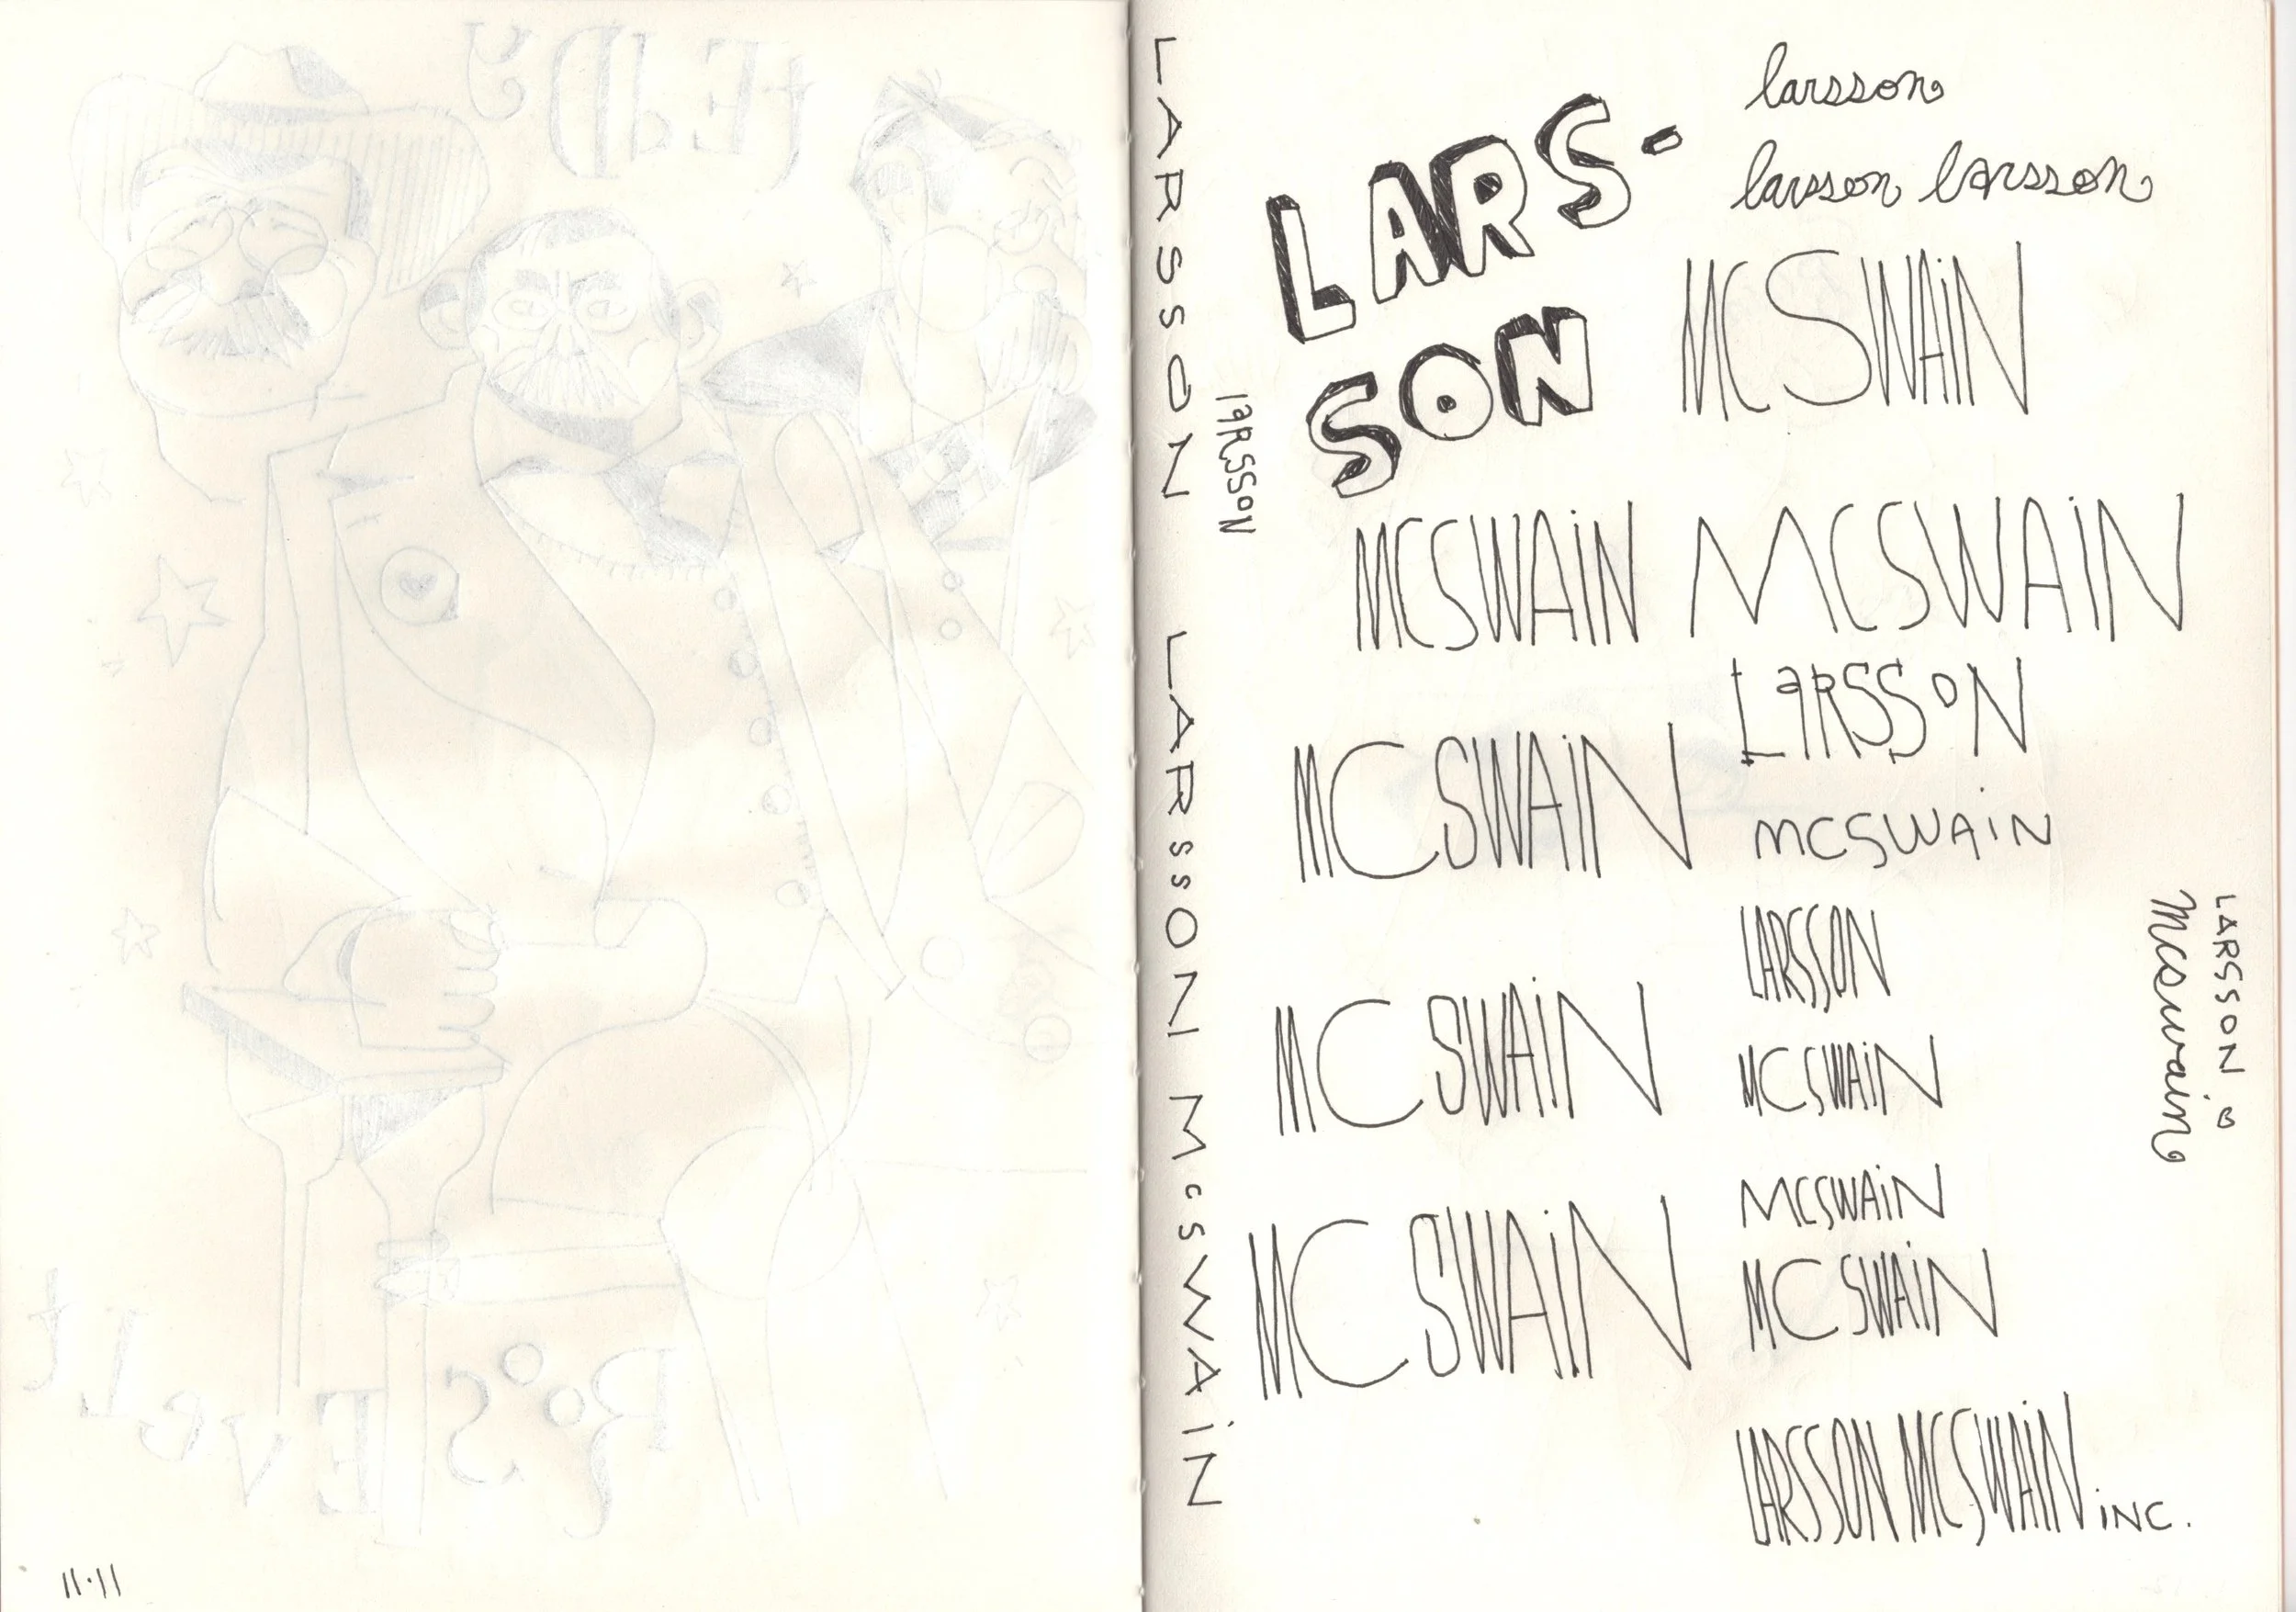 tEDy
RoosEveLt
11·11
LARSSON LARSSON McSWAiN
laRSSON
LARS-
SON
larsson
larsson larsson
MCSWAiN
MCSWAiN MCSWAiN
LaRSSoN
MCSWAiN
MCSWAiN
LARSSON
MCSWAiN
MCSWAiN
MCSWAiN
MCSWAiN
MCSWAiN
LARSSON MCSWAiN iNC.
LARSSON &
Mcswain